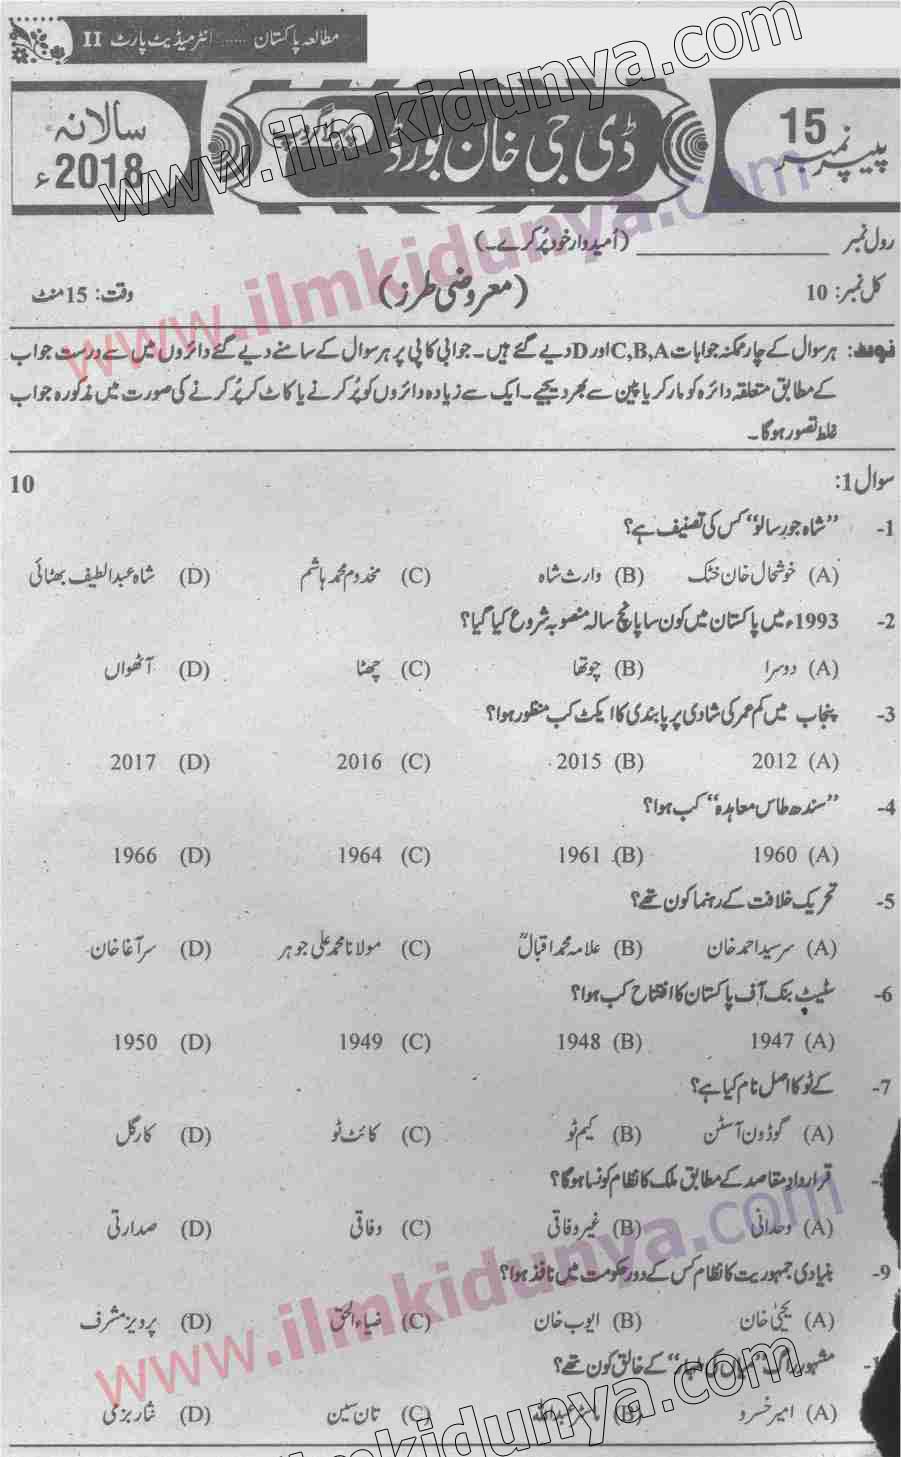 مطالعہ پاکستان ...... انٹرمیڈیٹ پارٹ II
پیپر نمبر 15
ڈی جی خان بورڈ
پہلا گروپ
سالانہ 2018ء
رول نمبر ______________ (اُمیدوار خود پُر کرے۔)
کل نمبر: 10 (معروضی طرز) وقت: 15 منٹ
نوٹ: ہر سوال کے چار ممکنہ جوابات C,B,A اور D دیے گئے ہیں۔ جوابی کاپی پر ہر سوال کے سامنے دیے گئے دائروں میں سے درست جواب
کے مطابق متعلقہ دائرہ کو مارکر یا پین سے بھر دیجیے۔ ایک سے زیادہ دائروں کو پُر کرنے یا کاٹ کر پُر کرنے کی صورت میں مذکورہ جواب
غلط تصور ہوگا۔
سوال 1: 10
1- ’’شاہ جو رسالو‘‘ کس کی تصنیف ہے؟
(A) خوشحال خان خٹک (B) وارث شاہ (C) مخدوم محمد ہاشم (D) شاہ عبدالطیف بھٹائی
2- 1993ء میں پاکستان میں کون سا پانچ سالہ منصوبہ شروع کیا گیا؟
(A) دوسرا (B) چوتھا (C) چھٹا (D) آٹھواں
3- پنجاب میں کم عمر کی شادی پر پابندی کا ایکٹ کب منظور ہوا؟
(A) 2012 (B) 2015 (C) 2016 (D) 2017
4- ’’سندھ طاس معاہدہ‘‘ کب ہوا؟
(A) 1960 (B) 1961 (C) 1964 (D) 1966
5- تحریک خلافت کے رہنما کون تھے؟
(A) سرسید احمد خان (B) علامہ محمد اقبالؒ (C) مولانا محمد علی جوہر (D) سر آغا خان
6- سٹیٹ بنک آف پاکستان کا افتتاح کب ہوا؟
(A) 1947 (B) 1948 (C) 1949 (D) 1950
7- کے ٹو کا اصل نام کیا ہے؟
(A) گوڈون آسٹن (B) کیم ٹو (C) کائٹ ٹو (D) کارگل
قراردادِ مقاصد کے مطابق ملک کا نظام کونسا ہوگا؟
(A) وحدانی (B) غیر وفاقی (C) وفاقی (D) صدارتی
9- بنیادی جمہوریت کا نظام کس کے دور حکومت میں نافذ ہوا؟
(A) یحییٰ خان (B) ایوب خان (C) ضیاء الحق (D) پرویز مشرف
مشہور راگ ’’میاں کی ملہار‘‘ کے خالق کون تھے؟
(A) امیر خسرو (B) ماسٹر عبداللہ (C) تان سین (D) نثار بزمی
www.ilmkidunya.com
www.ilmkidunya.com
www.ilmkidunya.com
ilmkidunya.com